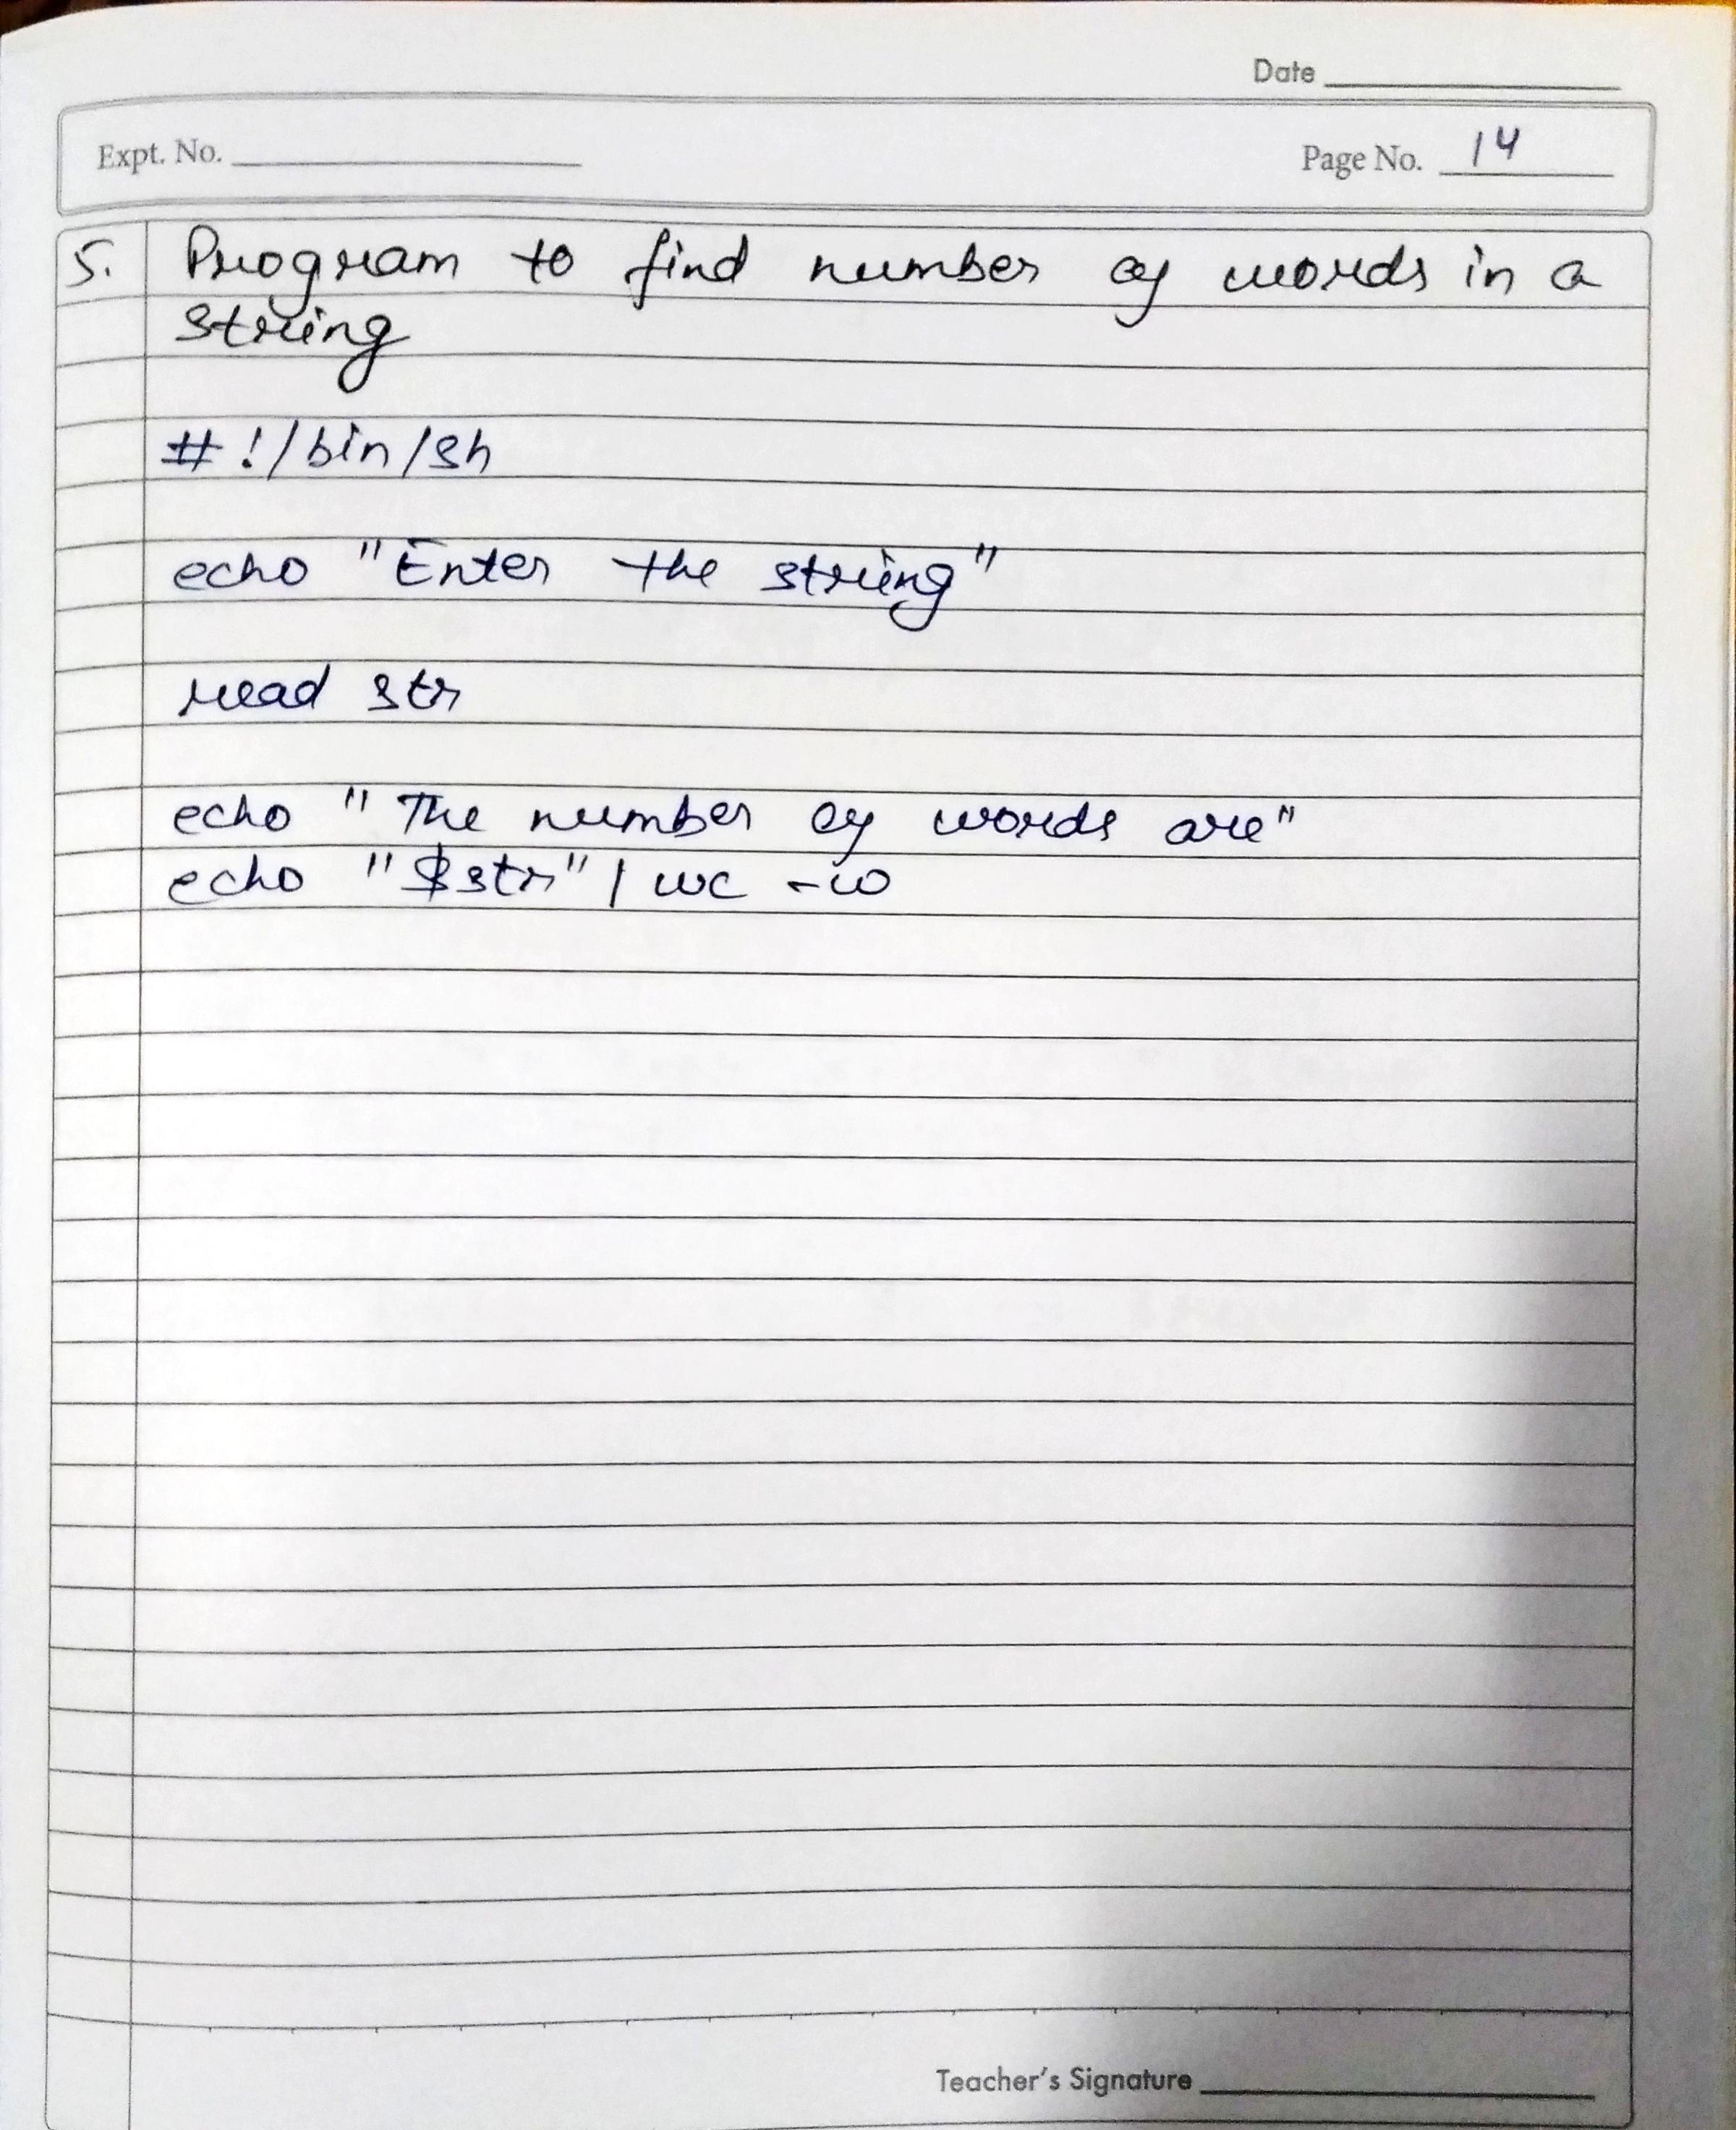 Date
Expt. No.
Page No. 14
5. Program to find number of words in a
string
#!/bin/sh
echo "Enter the string"
read str
echo "The number of words are"
echo "$str" | wc -w
Teacher's Signature